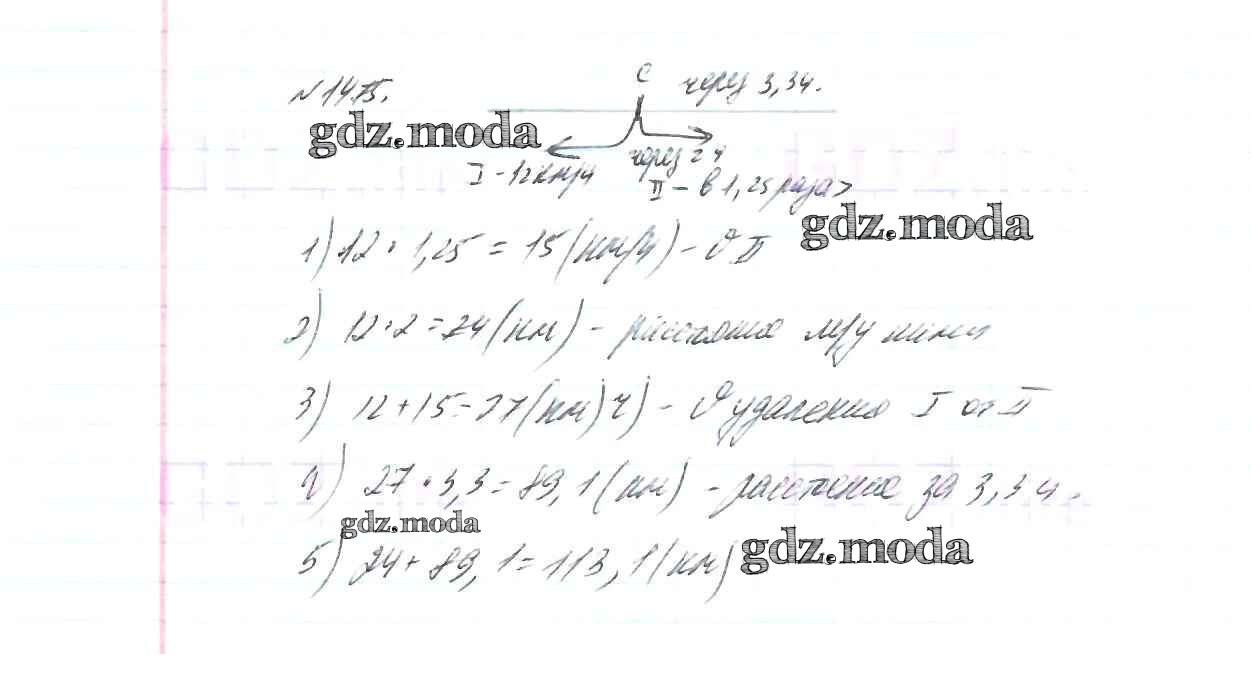 № 1475.
С через 3,3 ч.
gdz.moda
через 2 ч
I - 12 км/ч II - в 1,25 раза >
gdz.moda
1) 12 · 1,25 = 15 (км/ч) - v II
2) 12 · 2 = 24 (км) - расстояние м/у ними
3) 12 + 15 = 27 (км/ч) - v удаления I от II
4) 27 · 3,3 = 89,1 (км) - расстояние за 3,3 ч.
gdz.moda
5) 24 + 89,1 = 113,1 (км)
gdz.moda